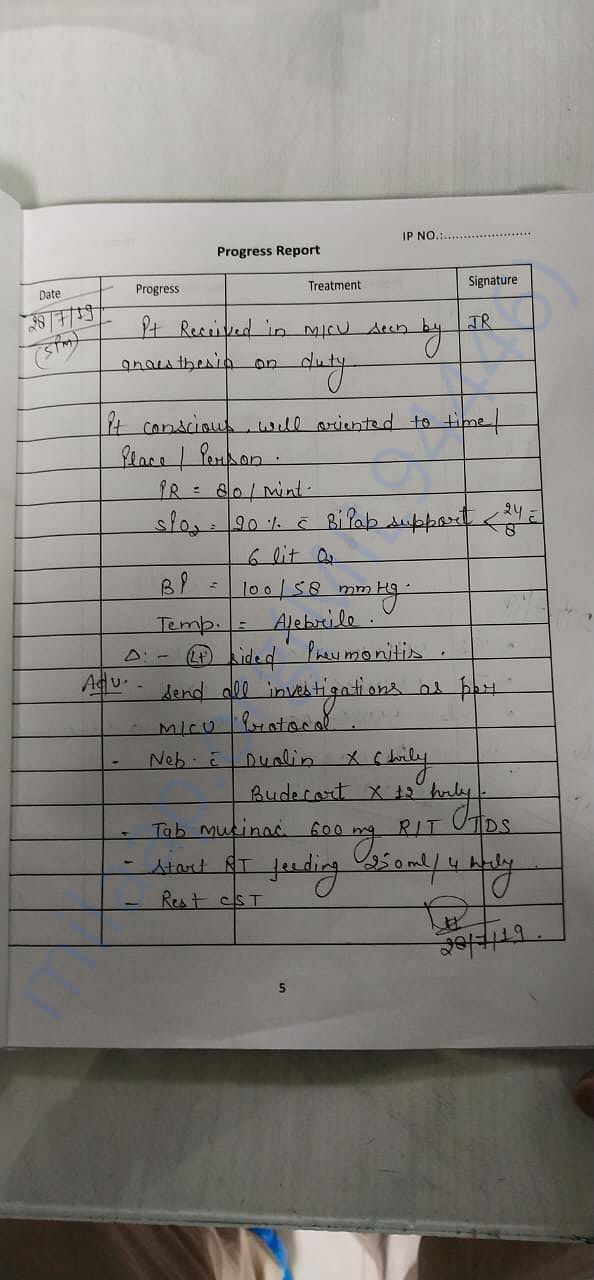 IP NO.:......................
Progress Report
Date Progress Treatment Signature
28/7/19 Pt Received in MICU seen by JR
(5PM) anaesthesia on duty.
Pt conscious, well oriented to time/
Place / Person.
PR = 80/mint.
SPO2 = 90% c̄ BiPab support < 24 c̄
8
6 lit O2
BP = 100/58 mmHg.
Temp. = Afebrile.
Δ:- (Lt) sided Pneumonitis.
Adv. - send all investigations as per
MICU Protocol.
- Neb. c̄ Duolin x 6 hrly
Budecort x 12 hrly.
- Tab Mucinac 600 mg R/T TDS
- Start RT feeding 250ml/4 hrly.
- Rest CST
28/7/19.
5
milaap.org(MIL94446)